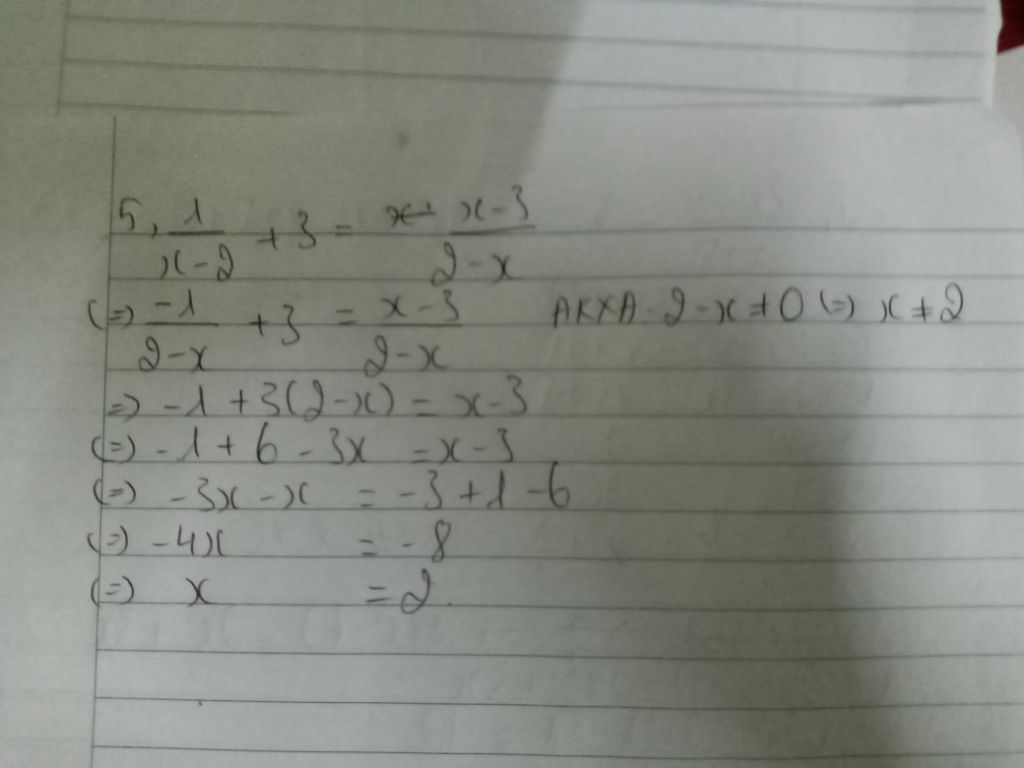 5, 1/(x-2) + 3 = (x-3)/(2-x)
(=) -1/(2-x) + 3 = (x-3)/(2-x) ĐKXĐ: 2-x ≠ 0 (=) x ≠ 2
=) -1 + 3(2-x) = x-3
(=) -1 + 6 - 3x = x-3
(=) -3x - x = -3 + 1 - 6
(=) -4x = -8
(=) x = 2.